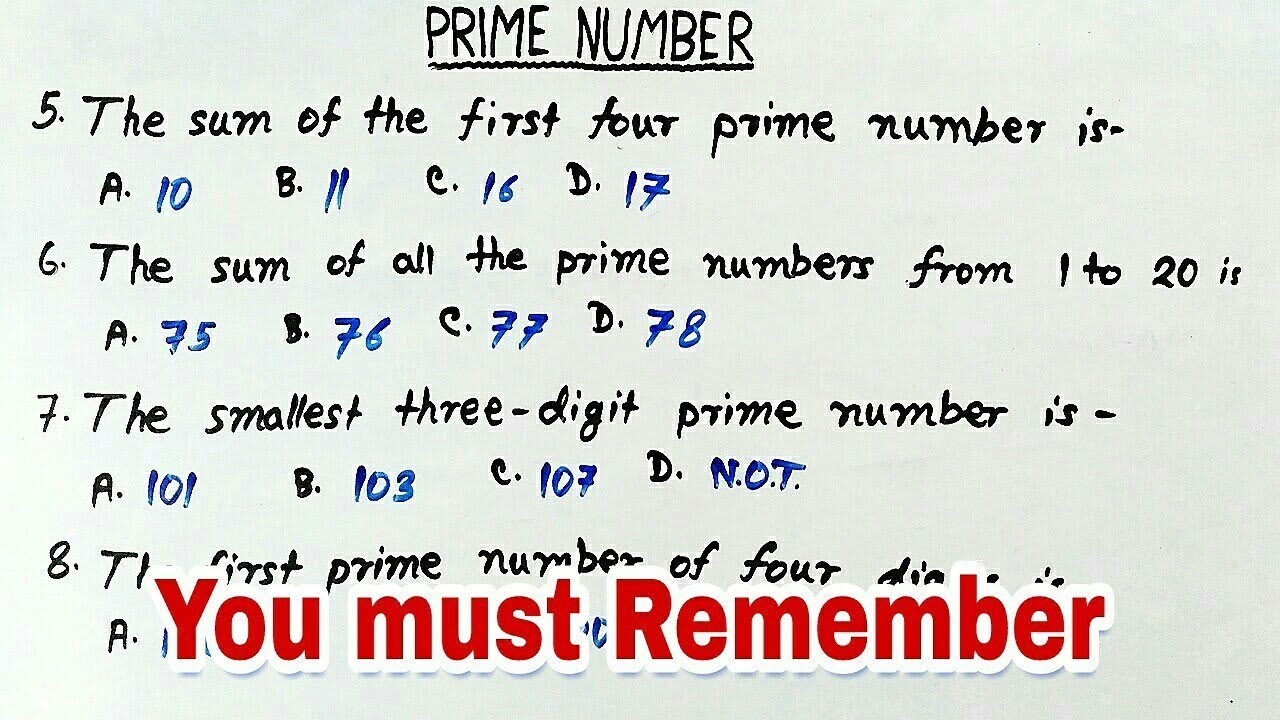 PRIME NUMBER
5. The sum of the first four prime number is-
A. 10 B. 11 C. 16 D. 17
6. The sum of all the prime numbers from 1 to 20 is
A. 75 B. 76 C. 77 D. 78
7. The smallest three-digit prime number is -
A. 101 B. 103 C. 107 D. N.O.T.
8. The first prime number of four is
A.
You must Remember